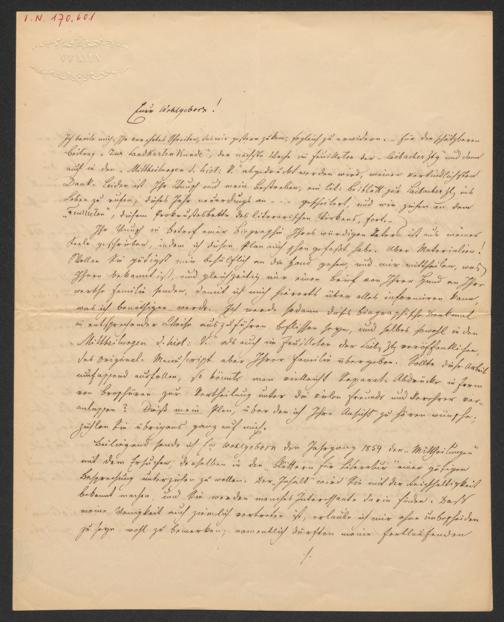 I.N. 170.601
Euer Wohlgeboren!
Ich beeile mich, Ihr verehrtes Schreiben, das mir gestern zukam, sogleich zu erwidern. Für den schätzbaren
Beitrag "Zur Landkartenkunde", der nächste Woche im Feuilleton der Laibacher Ztg und dann
auch in den "Mittheilungen d. hist. V." abgedruckt werden wird, meinen verbindlichsten
Dank. Leider ist Ihr Wunsch und mein Bestreben, ein lit. Beiblatt zur Laibacher Ztg ins
Leben zu rufen, dieses Jahr neuerdings an gescheitert, und wir zehren an dem
"Feuilleton", diesem des literarischen Wirkens, fort.
Ihr Wunsch in Betreff einer Biographie Ihres würdigen Vaters ist mir aus meiner
Seele geschrieben, indem ich diesen Plan auch schon gefasst habe. Aber Materialien!
Wollen Sie gütigst mir behilflich an die Hand gehen, und mir mittheilen, was
Ihnen bekannt ist, und gleichzeitig mir einen Brief von Ihrer Hand an Ihre
werthe Familie senden, damit ich mich hierorts über alles informiren kann,
was ich benöthigen werde. Ich werde sodann dieses biographische Denkmal
in entsprechender Weise auszuführen beflissen seyn, und selbes sowohl in den
Mittheilungen d. hist. V. als auch im Feuilleton der Laib. Ztg veröffentlichen,
das Original-Manuscript aber Ihrer Familie übergeben. Sollte diese Arbeit
umfassend ausfallen, so könnte man vielleicht Separat-Abdrücke in Form
von Broschüren zur Vertheilung unter die vielen Freunde und Verehrer ver-
anlassen? Dieß mein Plan, über den ich Ihre Ansicht zu hören wünsche.
zählen Sie übrigens ganz auf mich.
Beiliegend sende ich Euer Wohlgeboren den Jahrgang 1859 der "Mittheilungen"
mit dem Ersuchen, denselben in den Blättern für Literatur einer gütigen
Besprechung unterziehen zu wollen. Der Inhalt wird Sie mit der Reichhaltigkeit
bekannt machen und Sie werden manches Interessante darin finden. Daß
meine Wenigkeit auch ziemlich vertreten ist, erlaube ich mir ohne unbescheiden
zu seyn wohl zu bemerken; namentlich dürften meine fortlaufenden
./.